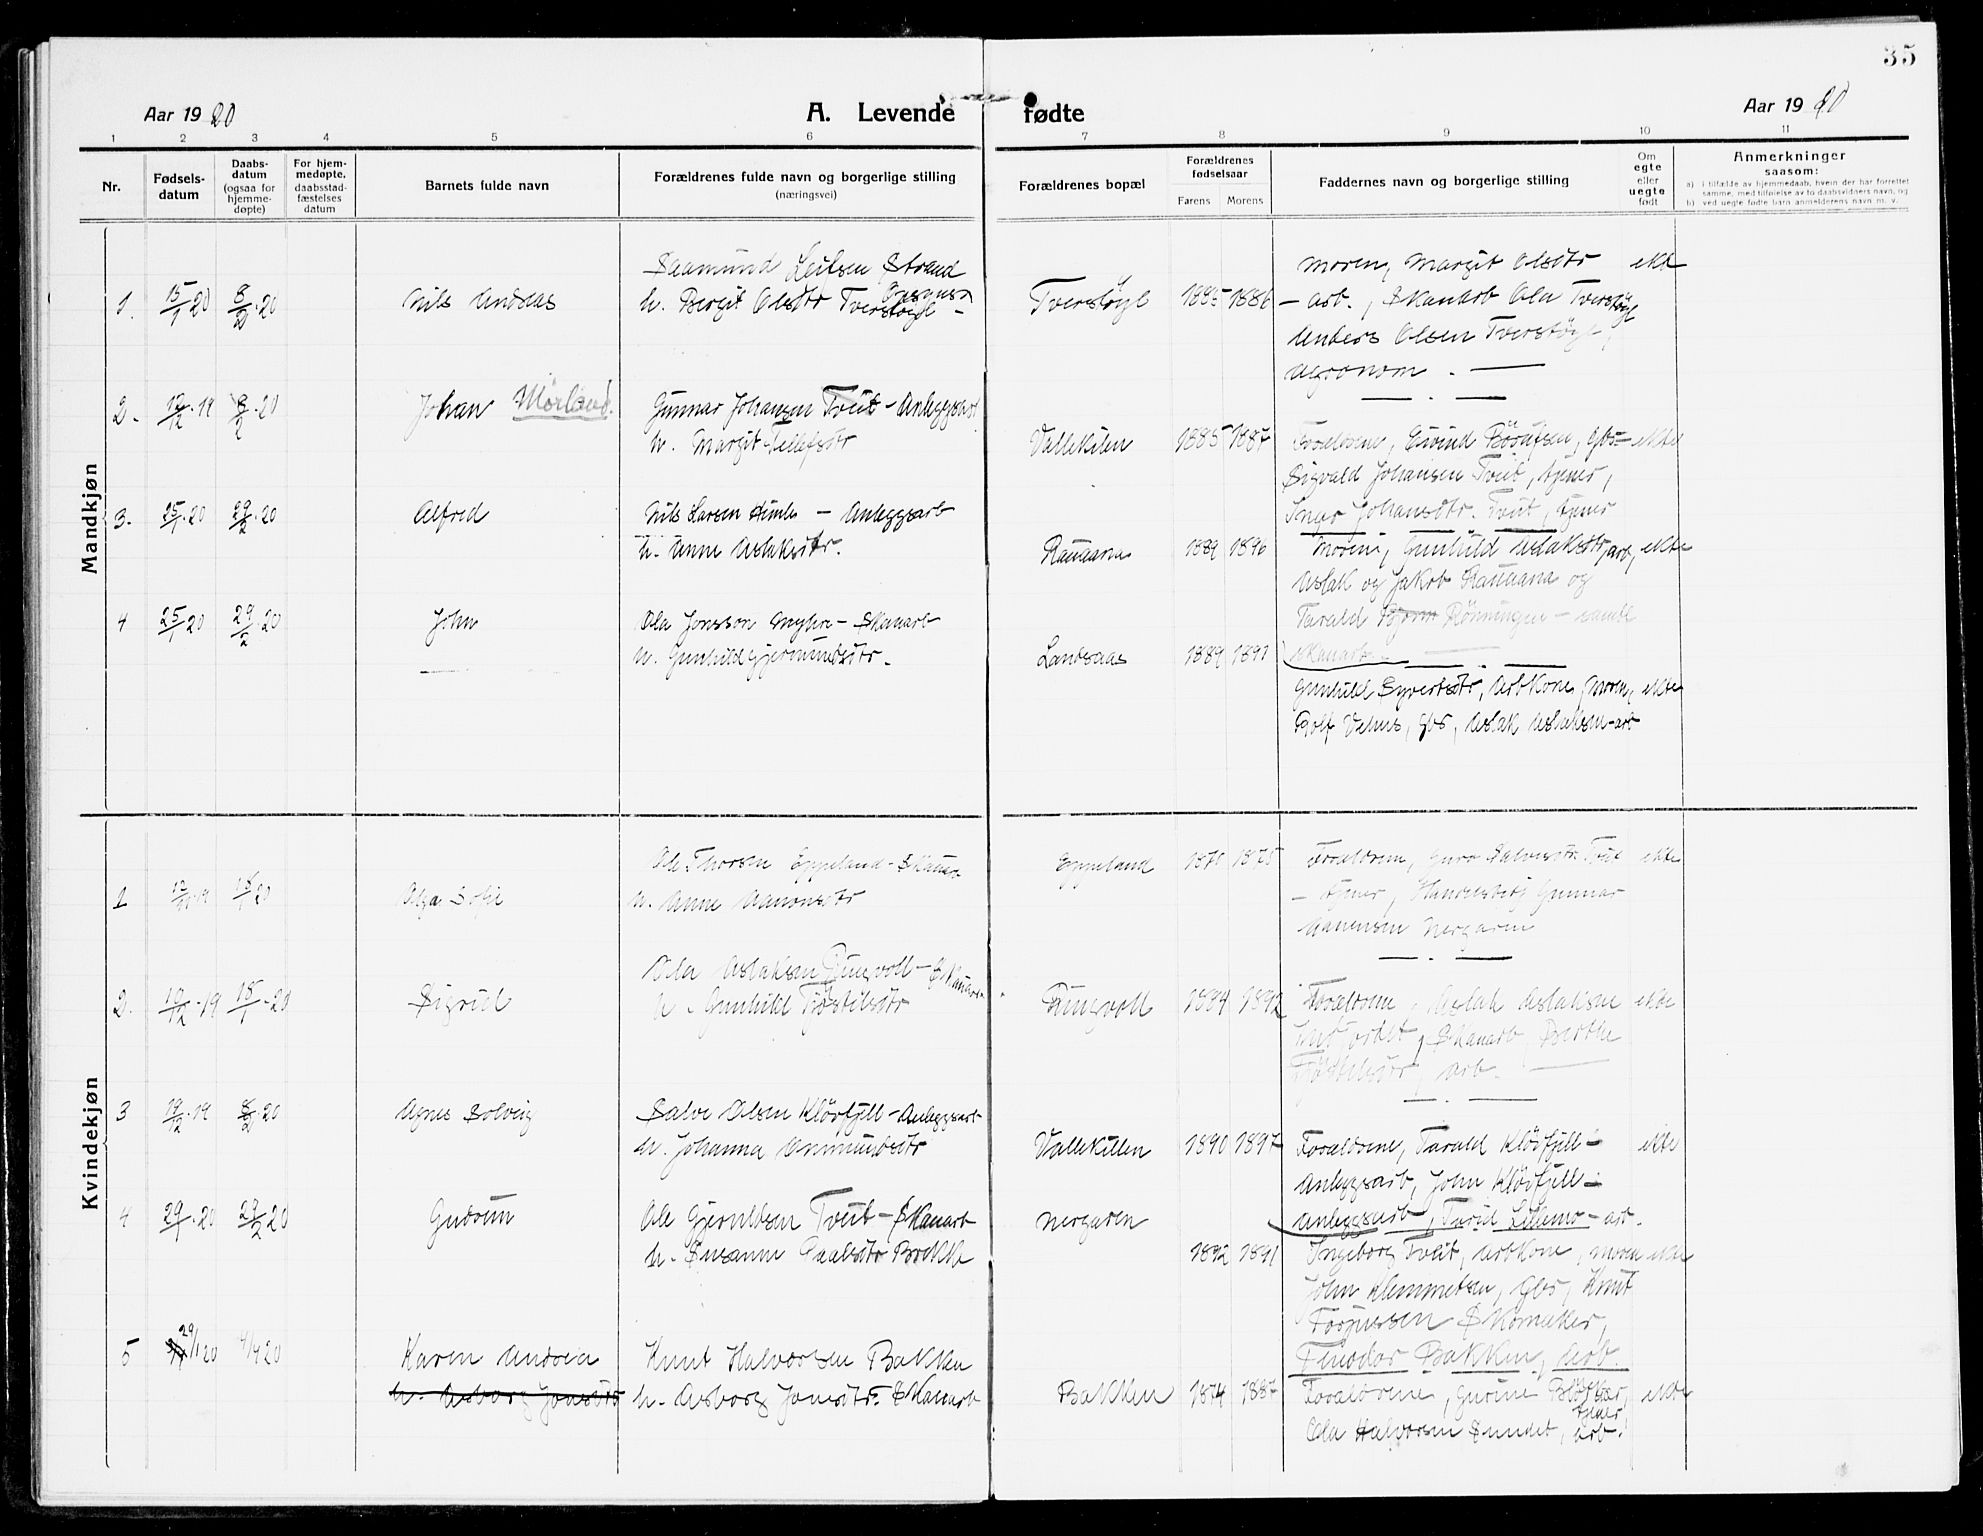 35
Aar 1920
A. Levende fødte
Aar 1920
1 2 3 4 5 6 7 8 9 10 11
Nr.
Fødsels-
datum
Daabs-
datum
(ogsaa for
hjemme-
døpte)
For hjem-
medøpte,
daabsstad-
fæstelses
datum
Barnets fulde navn
Forældrenes fulde navn og borgerlige stilling
(næringsvei)
Forældrenes bopæl
Forældrenes
fødselsaar
Farens Morens
Faddernes navn og borgerlige stilling
Om
egte
eller
uegte
født
Anmerkninger
saasom:
a) i tilfælde av hjemmedaab, hvem der har forrettet
samme, med tilføielse av to daabsvidners navn, og
b) ved uegte fødte barn anmelderens navn m. v.
Mandkjøn
1. 15/1 20 8/2 20 Nils Andreas
Saamund Leifsen Strand
h. Birgit Olsdtr Tverstøyl
Tverstøyl 1885 1886
Moren, Margit Olsdtr ekte
- arb., Skauarb Ola Tverstøyl
Anders Olsen Tverstøyl,
agronom. —
2. 12/12 19 8/2 20 Johan Mørland.
Gunnar Johansen Tveit - Anleggsarb
h. Margit Tellefsdtr
Vallekilen 1885 1887
Foreldrene, Eivind , gbr - ekte
Sigvald Johansen Tveit, tjener,
Inger Johansdtr. Tveit, tjener
3. 25/1 20 29/2 20 Alfred
Nils Larsen - Anleggsarb
h. Anne Aslaksdtr.
Rauaana 1889 1896
Moren, Gunhild Aslaksdtr, arb, ekte
Aslak og Jakob Rauaana og
Tarald Rønningen -
skauarb.
4 25/1 20 29/2 20 John
Ola Jonsson Myhre - Skauarb
h. Gunhild Gjermundsdtr.
Landsaas 1889 1891
Gunhild Syvertsdtr, arbkone, Moren, ekte
Rolf , gbr, Aslak Aslaksen - arb
Kvindekjøn
1 18/1 20 Olga Sofie
Ole Thorsen Eppeland - Skauarb
h. Anne Aanonsdtr
Eppeland 1870 1875
Foreldrene, Guro Salvesdtr. Tveit ekte
- tjener, Handelsbetj Gunnar
Aanensen Nergaren
2. 19/12 19 18/1 20 Sigrid
Ola Aslaksen Ringvoll - Skauarb
h. Gunhild Tjøstilsdtr
Ringvoll 1884 1892
Foreldrene, Aslak Aslaksen ekte
, Skauarb, Berthe
Tjøstilsdtr, arb. —
3 19/12 19 8/2 20 Agnes Solveig
Salve Olsen Kløvfjell - Anleggsarb
h. Johanna Ommundsdtr
Vallekilen 1890 1897
Foreldrene, Tarald Kløvfjell - ekte
Anleggsarb, John Kløvfjell -
Anleggsarb, Torid Lillemo - arb.
4 29/1 20 29/2 20 Gudrun
Ole Gjeruldsen Tveit - Skauarb
h. Susanne Paalsdtr Brekke
Nergaren
1892 1891
Ingeborg Tveit, arbkone, moren ekte
John Klemmetsen, Gbr, Knut
Torjussen Skomaker,
Teodor Bakken, arb.
5 29/1 20 4/4 20 Karen Andrea
h. Asborg Jonsdtr
Knut Halvorsen Bakken
h. Asborg Jonsdtr. Skauarb
Bakken 1874 1887
Foreldrene, Gurine , tjener ekte
Ola Halvorsen Sundet, arb.